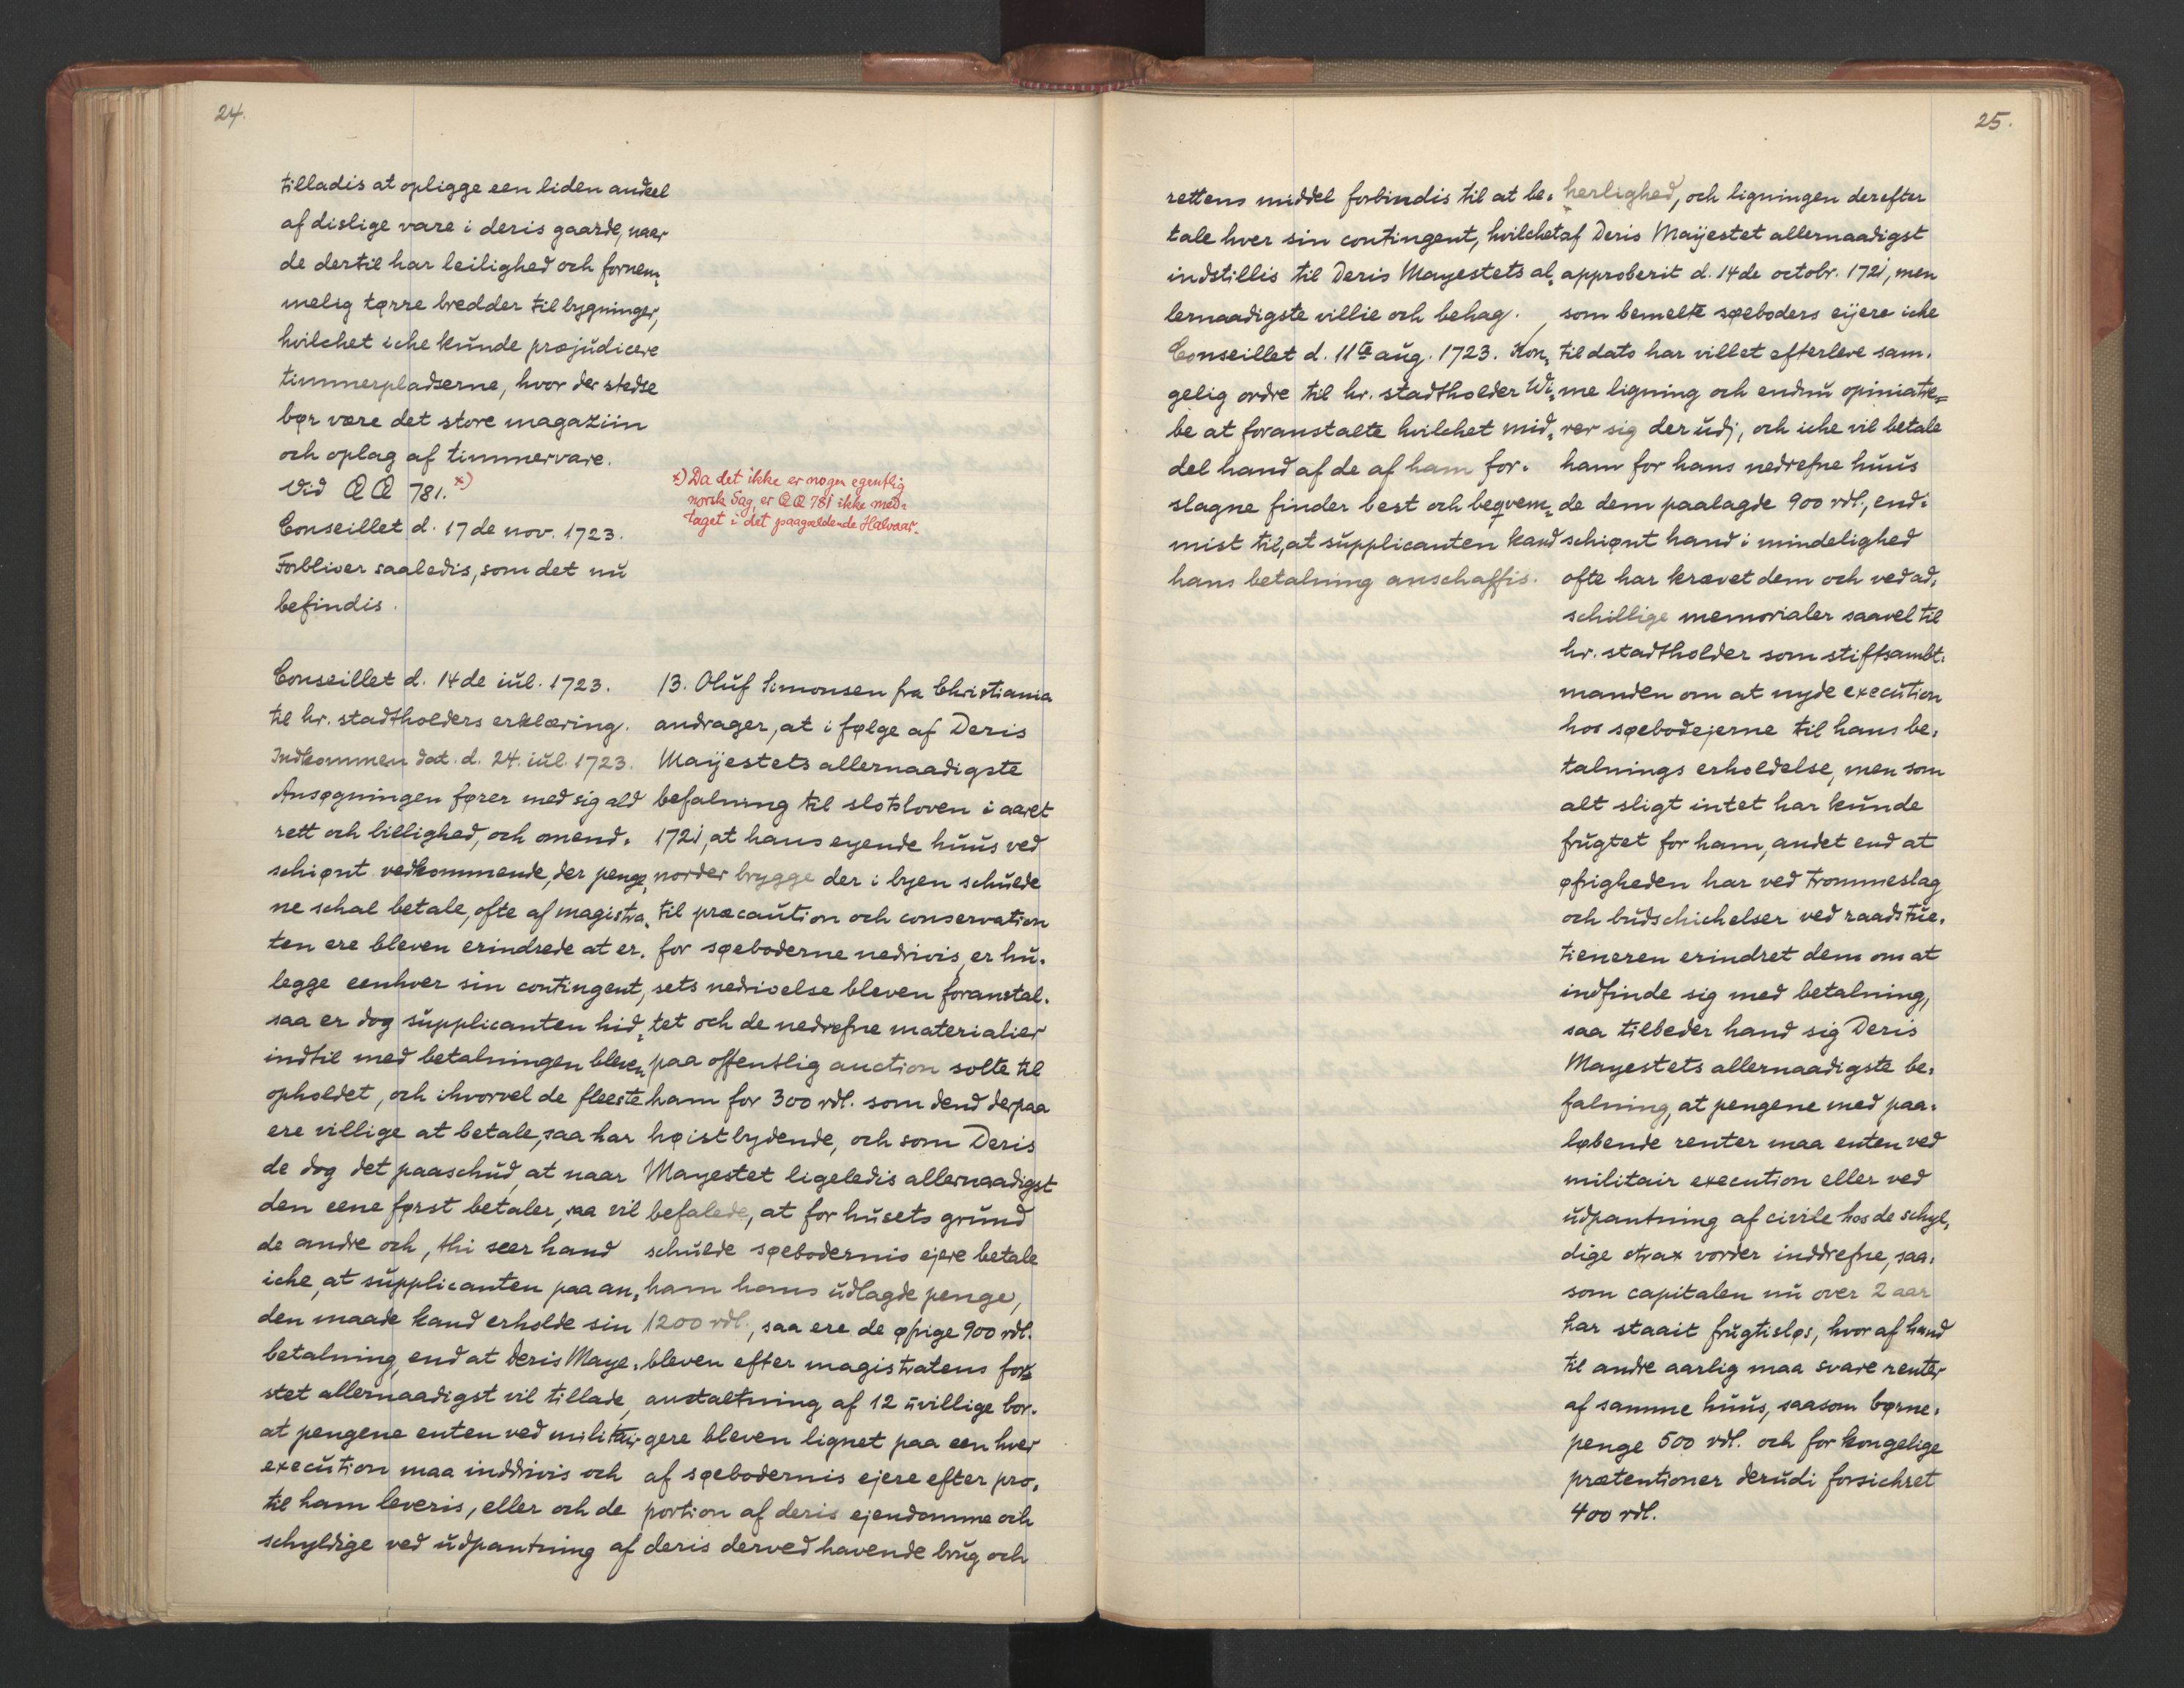 24.
tilladis at opligge een liden andeel
af dislige vare i deris gaarde, naar
de dertil har leilighed och fornem,
melig tørre bredder til bygninger,
hvilchet iche kunde præjudicere
timmerpladserne, hvor der stedse
bør være det store magaziin
och oplag af timmervare.
Vid QQ 781. x)
Conseillet d. 17de nov. 1723.
Forbliver saaledis, som det nu
befindis.
x) Da det ikke er nogen egentlig
norsk Sag, er QQ 781 ikke med-
taget i det paagældende Halvaar.
Conseillet d. 14de iul. 1723.
til hr. stadtholders erklæring.
Indkommen dat. d. 24. iul. 1723.
Ansøgningen fører med sig ald
rett och billighed, och omend-
schiønt vedkommende, der penge,
ne schal betale, ofte af magistra,
ten ere bleven erindrede at er-
legge eenhver sin contingent,
saa er dog supplicanten hid,
indtil med betalningen bleven
opholdet, och ihvorvel de fleeste
ere villige at betale, saa har
de dog det paaschud, at naar
den eene først betaler, saa vil
de andre och, thi seer hand
iche, at supplicanten paa an,
den maade kand erholde sin
betalning, end at Deris Maye-
stet allernaadigst vil tillade,
at pengene enten ved militair
execution maa inddrivis och
til ham leveris, eller och de
schyldige ved udpantning af
13. Oluf Simonsen fra Christiania
andrager, at i følge af Deris
Maÿestets allernaadigste
befalning til slotsloven i aaret
1721, at hans eyende huus ved
norder brygge der i byen schulde
til præcaution och conservation
for søeboderne nedrivis, er hu-
sets nedrivelse bleven foranstal-
tet och de nedrefne materialier
paa offentlig auction solte til
ham for 300 rdl. som dend derpaa
høistbydende, och som Deris
Mayestet ligeledis allernaadigst
befalede, at for husets grund
schulde søebodernis ejere betale
ham hans udlagde penge,
1200 rdl., saa ere de øfrige 900 rdl.
bleven efter magistratens for-
anstaltning af 12 uvillige bor-
gere bleven lignet paa een hver
af søebodernis ejere efter pro-
portion af deris ejendomme och
deris derved havende brug och
25.
rettens middel forbindis til at be-
tale hver sin contingent, hvilchet
indstillis til Deris Mayestets al,
lernaadigste villie och behag.
Conseillet d. 11te aug. 1723. Kon,
gelig ordre til hr. stadtholder Wi,
be at foranstalte hvilchet mid,
del hand af de af ham for-
slagne finder best och beqvem,
mist til, at supplicanten kand
hans betalning anschaffis.
herlighed, och ligningen derefter
af Deris Maÿestet allernaadigst
approberit d. 14de octobr. 1721, men
som bemelte søeboders eÿere iche
til dato har villet efterleve sam-
me ligning och endnu opiniatre=
rer sig der udj, och iche vil betale
ham for hans nedrefne huus
de dem paalagde 900 rdl., end-
schiønt hand i mindelighed
ofte har krævet dem och ved ad,
schillige memorialer saavel til
hr. stadtholder som stiftsambt-
manden om at nyde execution
hos søebodejerne til hans be-
talnings erholdelse, men som
alt sligt intet har kunde
frugtet for ham, andet end at
øfrigheden har ved trommeslag
och budschichelser ved raadstue-
tieneren erindret dem om at
indfinde sig med betalning,
saa tilbeder hand sig Deris
Mayestets allernaadigste be-
falning, at pengene med paa-
løbende renter maa enten ved
militair execution eller ved
udpantning af civile hos de schyl,
dige strax vorder inddrefne, saa-
som capitalen nu over 2 aar
har staait frugtisløs, hvoraf hand
til andre aarlig maa svare renter
af samme huus, saasom børne-
penge 500 rdl. och for kongelige
prætentioner derudi forsichret
400 rdl.